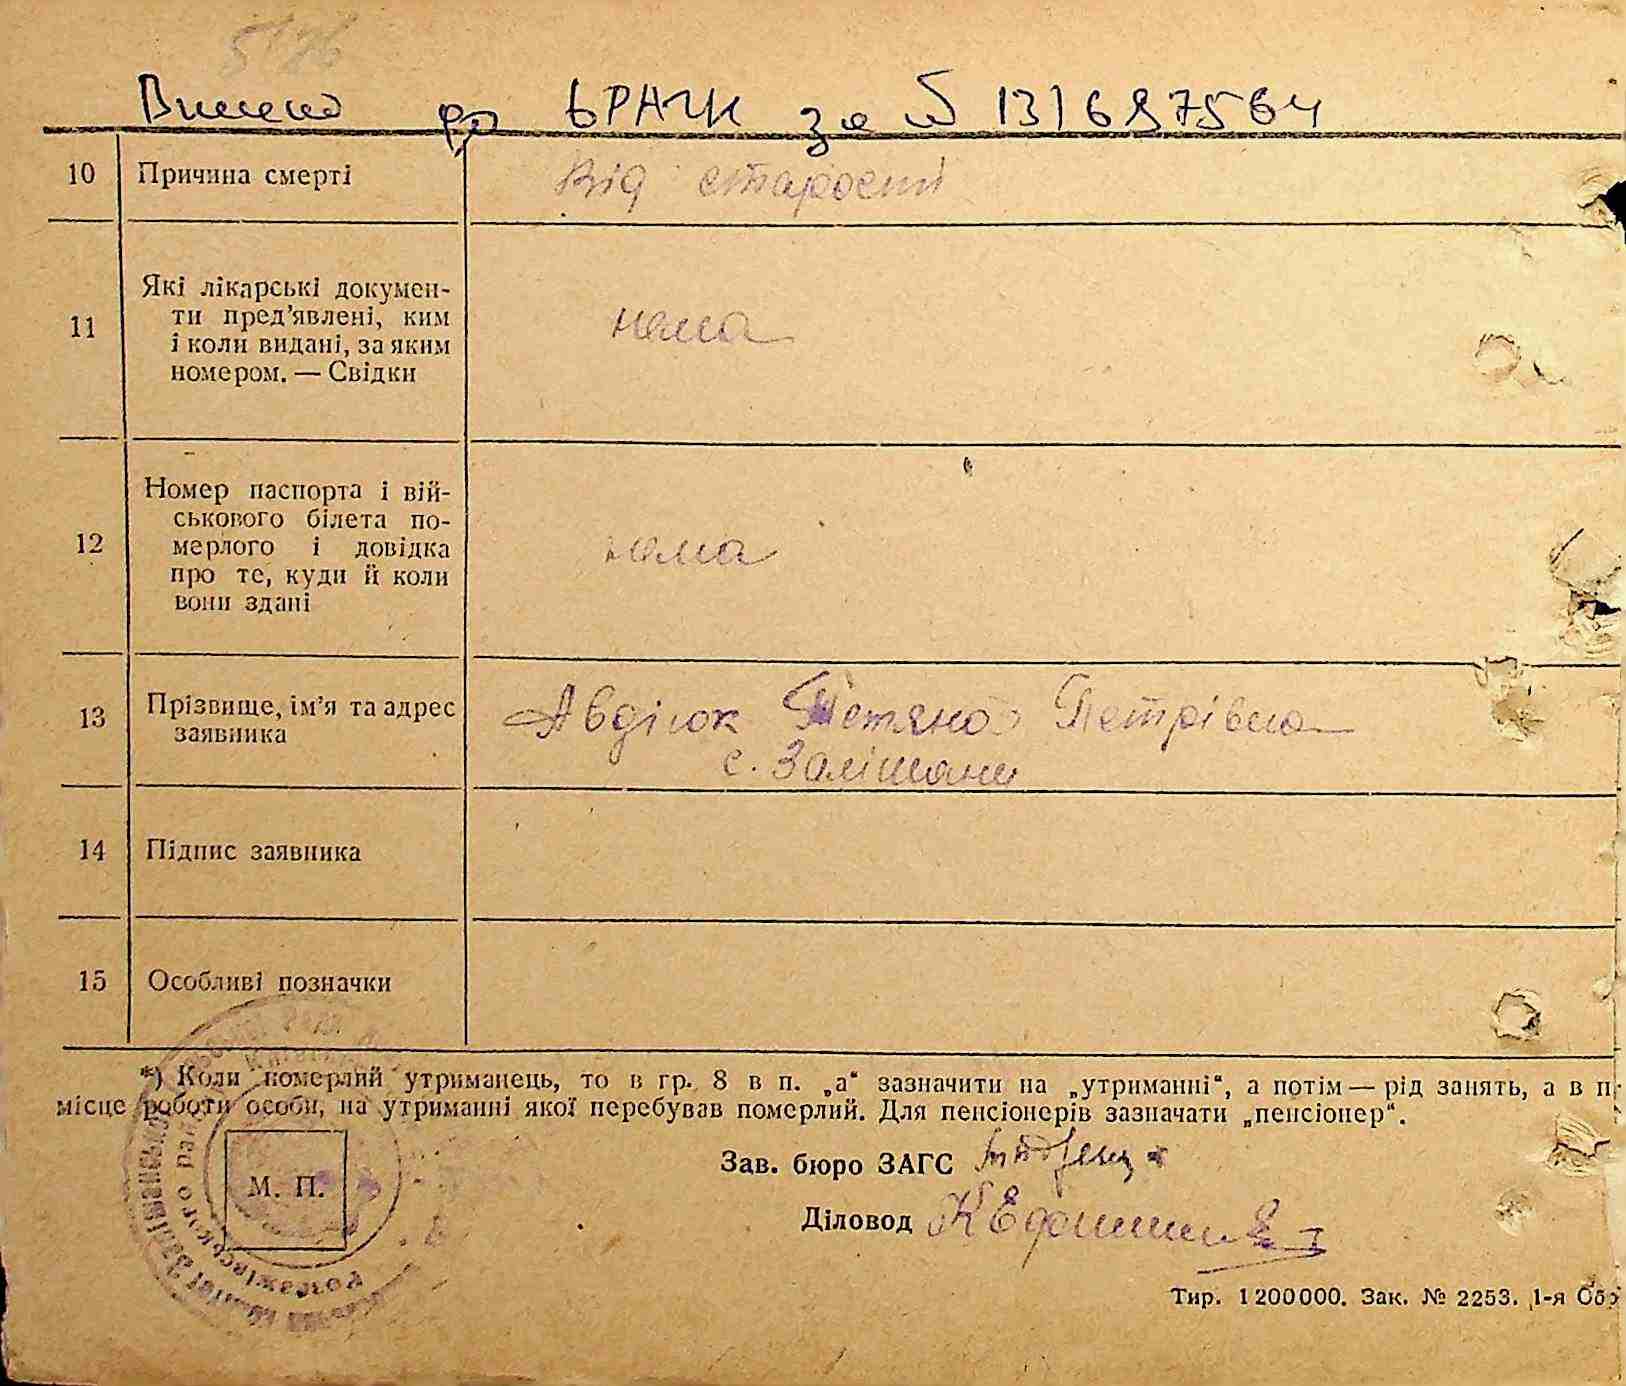 5176
Внесено до ДРАЦС за № 131687564
10 Причина смерті Від старости
11 Які лікарські докумен-
ти пред’явлені, ким
і коли видані, за яким
номером. — Свідки
нема
12 Номер паспорта і вій-
ськового білета по-
мерлого і довідка
про те, куди й коли
вони здані
нема
13 Прізвище, ім’я та адрес
заявника
Авдіюк Тетяна Петрівна
с. Залішани
14 Підпис заявника
15 Особливі позначки
*) Коли померлий утриманець, то в гр. 8 в п. „а“ зазначити на „утриманні“, а потім — рід занять, а в п
місце роботи особи, на утриманні якої перебував померлий. Для пенсіонерів зазначати „пенсіонер“.
Зав. бюро ЗАГС
Діловод
М. П.
Тир. 1200000. Зак. № 2253. 1-я Обр